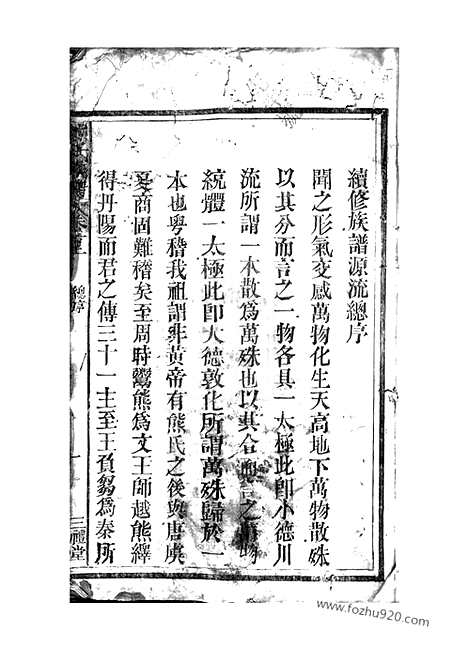 續修族譜源流總序
聞之形氣交感萬物化生天高地下萬物散殊
以其分而言之一物各具一太極此卽小德川
流所謂一本散爲萬殊也以其合而言之萬物
統體一太極此卽大德敦化所謂萬殊歸於一
本也粤稽我祖謂非黃帝有熊氏之後與唐虞
夏商固難稽矣至周時鬻熊爲文王師越熊繹
得丹陽而君之傳三十一主至王負芻爲秦所
氏族譜
總序
三禮堂
www.fozhu920.com